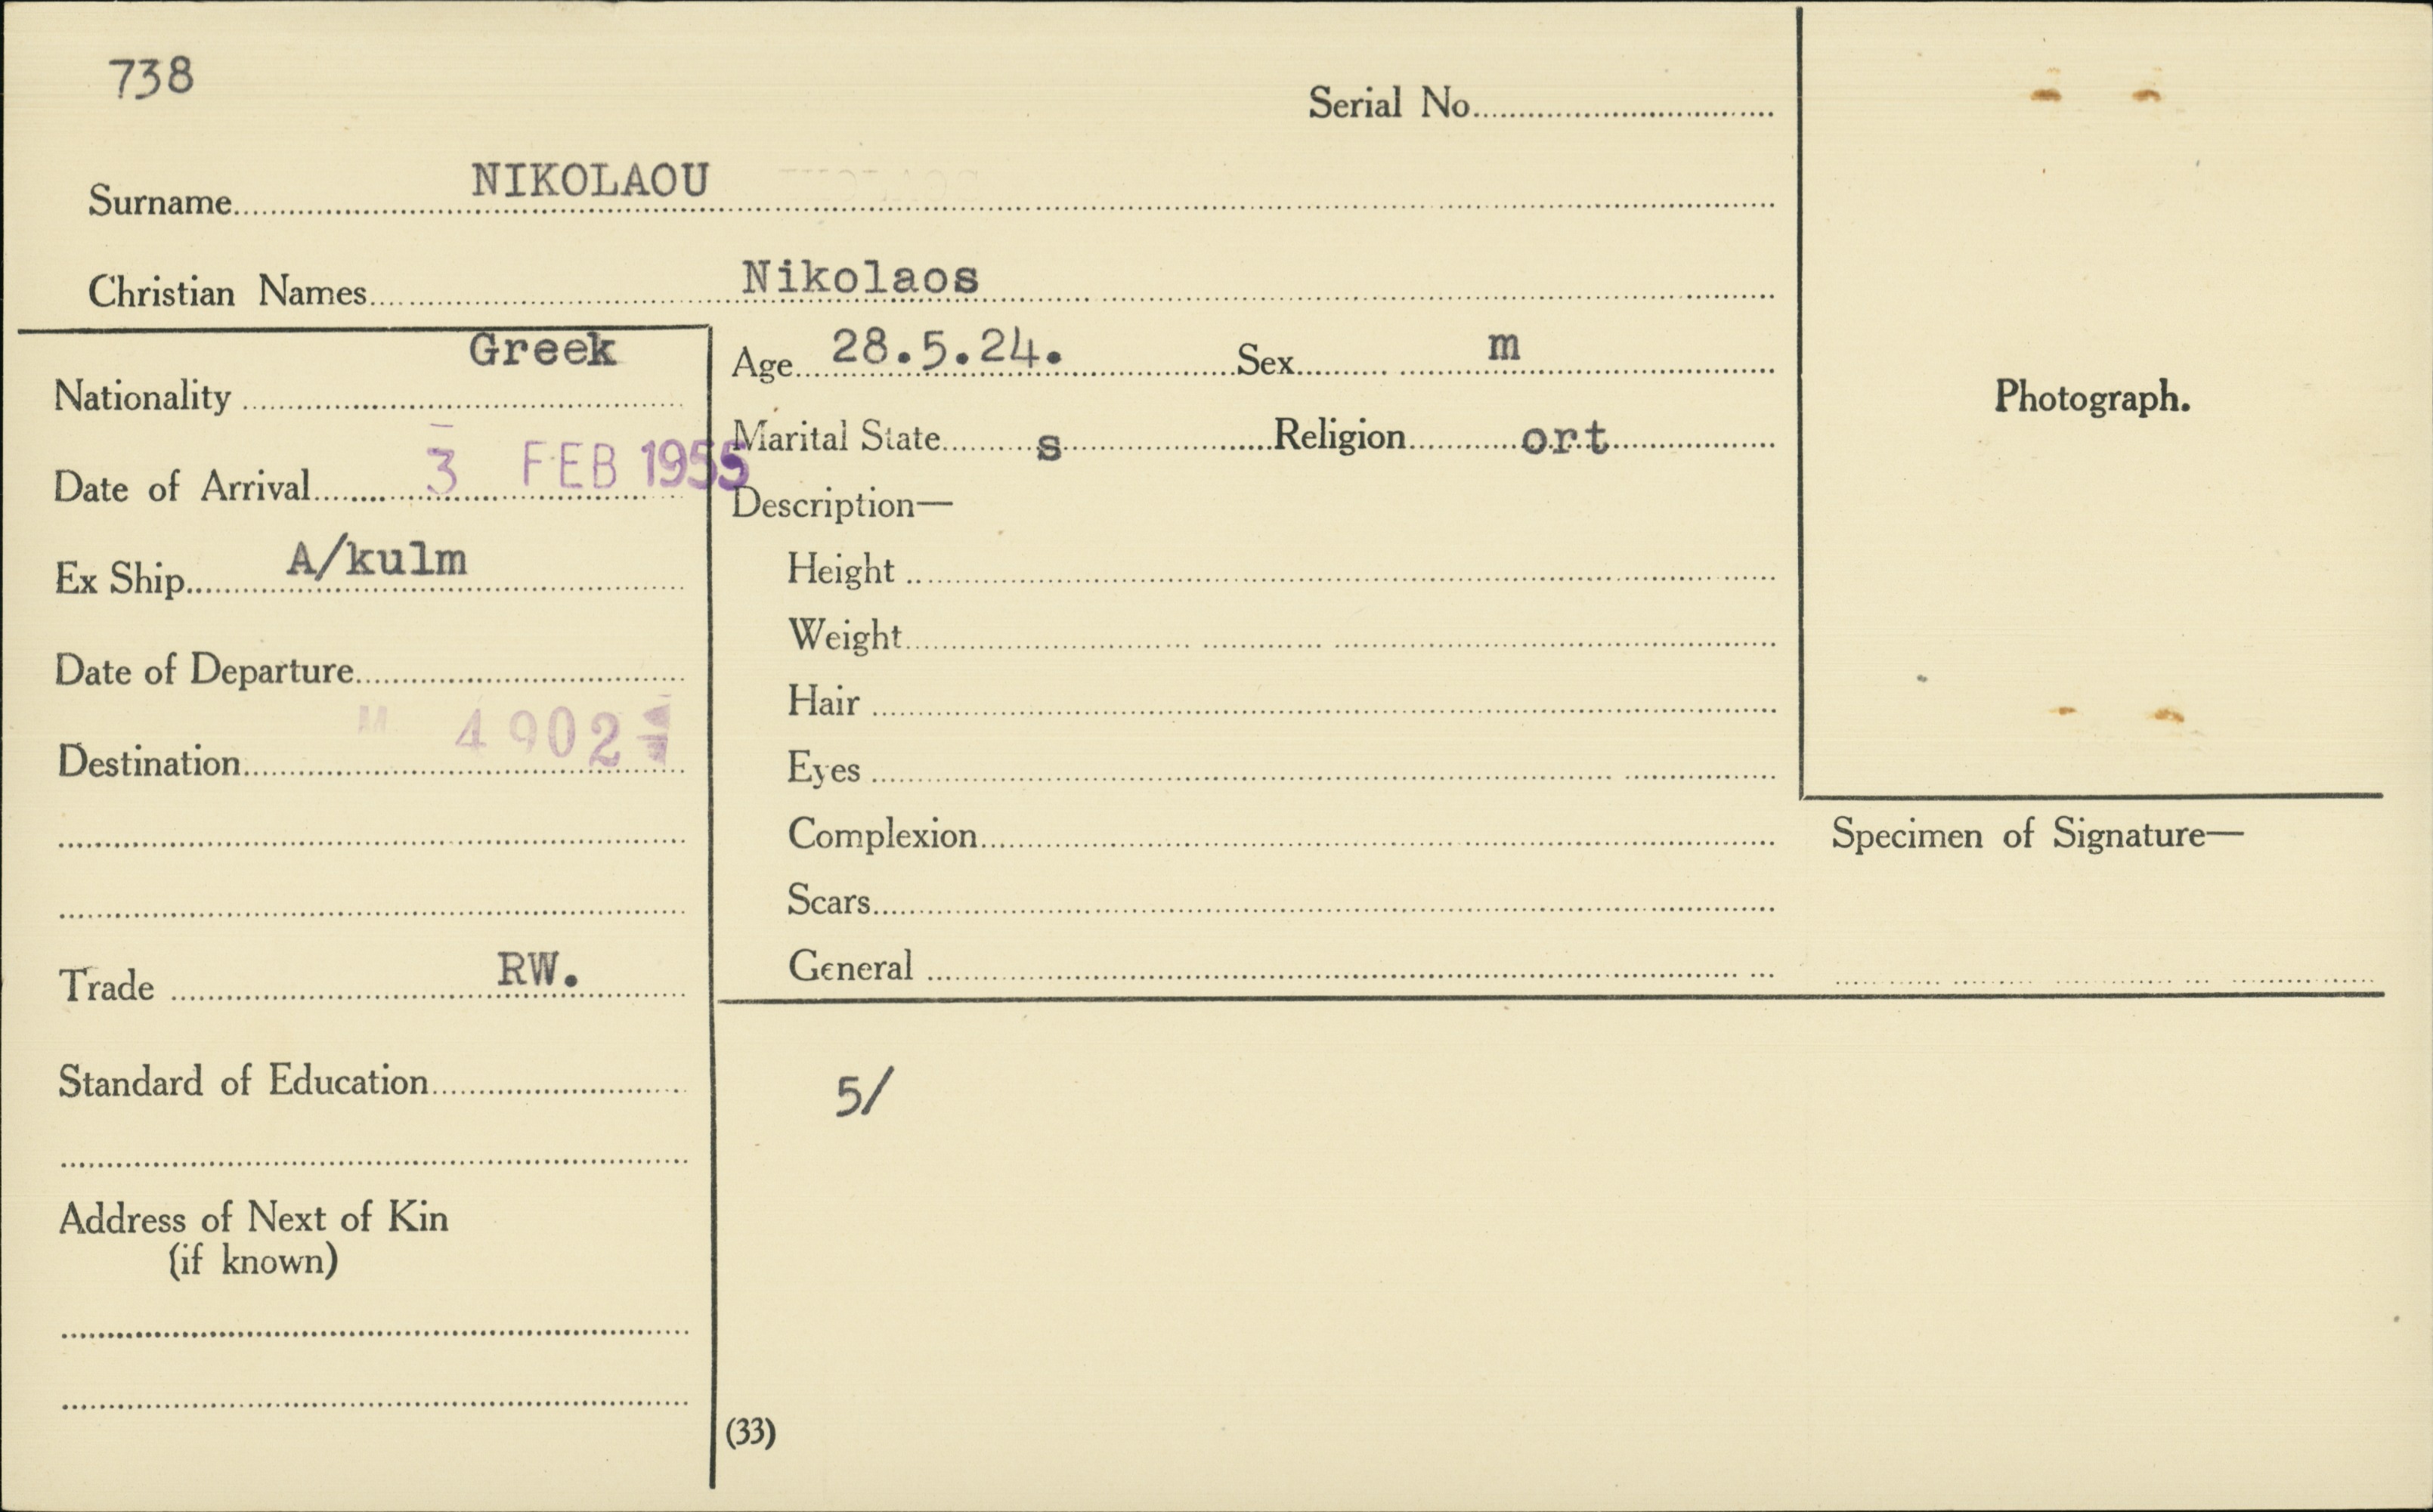 738
Serial No.
Surname NIKOLAOU
Christian Names Nikolaos
Nationality Greek
Date of Arrival 3 FEB 1955
Ex Ship A/kulm
Date of Departure
M 4902
Destination
Trade RW.
Standard of Education
Address of Next of Kin
(if known)
Age 28.5.24. Sex m
Marital State s Religion ort
Description—
Height
Weight
Hair
Eyes
Complexion
Scars
General
5/
(33)
Photograph.
Specimen of Signature—